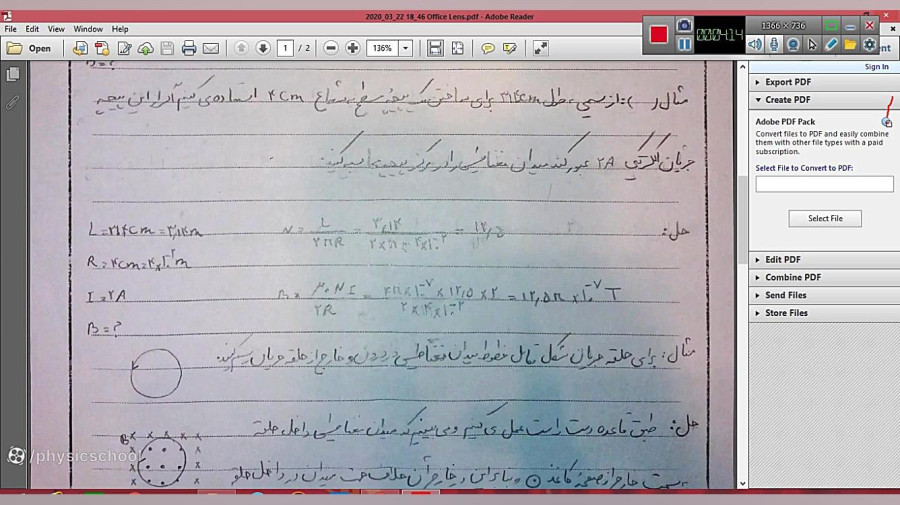 2020_03_22 18_46 Office Lens.pdf - Adobe Reader
File Edit View Window Help
1366 × 736
Open 1 / 2 136%
00:04:14
Sign In
Export PDF
Create PDF
Adobe PDF Pack
Convert files to PDF and easily combine them with other file types with a paid subscription.
Select File to Convert to PDF:
Select File
Edit PDF
Combine PDF
Send Files
Store Files
B = ?
مثال ): از سیمی به طول ۳۱۴cm برای ساختن یک پیچه مسطح به شعاع ۴cm استفاده می کنیم اگر از این پیچه
جریان الکتریکی ۲A عبور کند میدان مغناطیسی را در مرکز پیچه محاسبه کنید.
حل:
L = ۳۱۴cm = ۳٫۱۴m
N = L / ۲πR = ۳٫۱۴ / ۲×π×۴×۱۰⁻² = ۱۲٫۵
R = ۴cm = ۴×۱۰⁻²m
I = ۲A
B = μ۰NI / ۲R = ۴π×۱۰⁻⁷×۱۲٫۵×۲ / ۲×۴×۱۰⁻² = ۱۲٫۵π×۱۰⁻⁷ T
B = ?
مثال: برای حلقه جریان شکل مقابل خطوط میدان مغناطیسی در درون و خارج از حلقه جریان رسم کنید.
حل: طبق قاعده دست راست عمل می کنیم و می بینیم که میدان مغناطیسی داخل حلقه
B x x x x x
به سمت خارج از صفحه کاغذ ⊙ و بنابراین در خارج آن خلاف جهت میدان در داخل حلقه
/physicschool